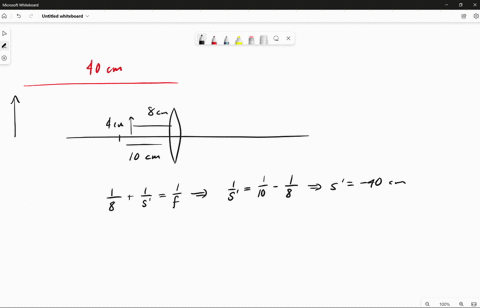 Microsoft Whiteboard
Untitled whiteboard
40 cm
8 cm
4 cm
10 cm
1/8 + 1/s' = 1/f ⇒ 1/s' = 1/10 - 1/8 ⇒ s' = -40 cm
100%